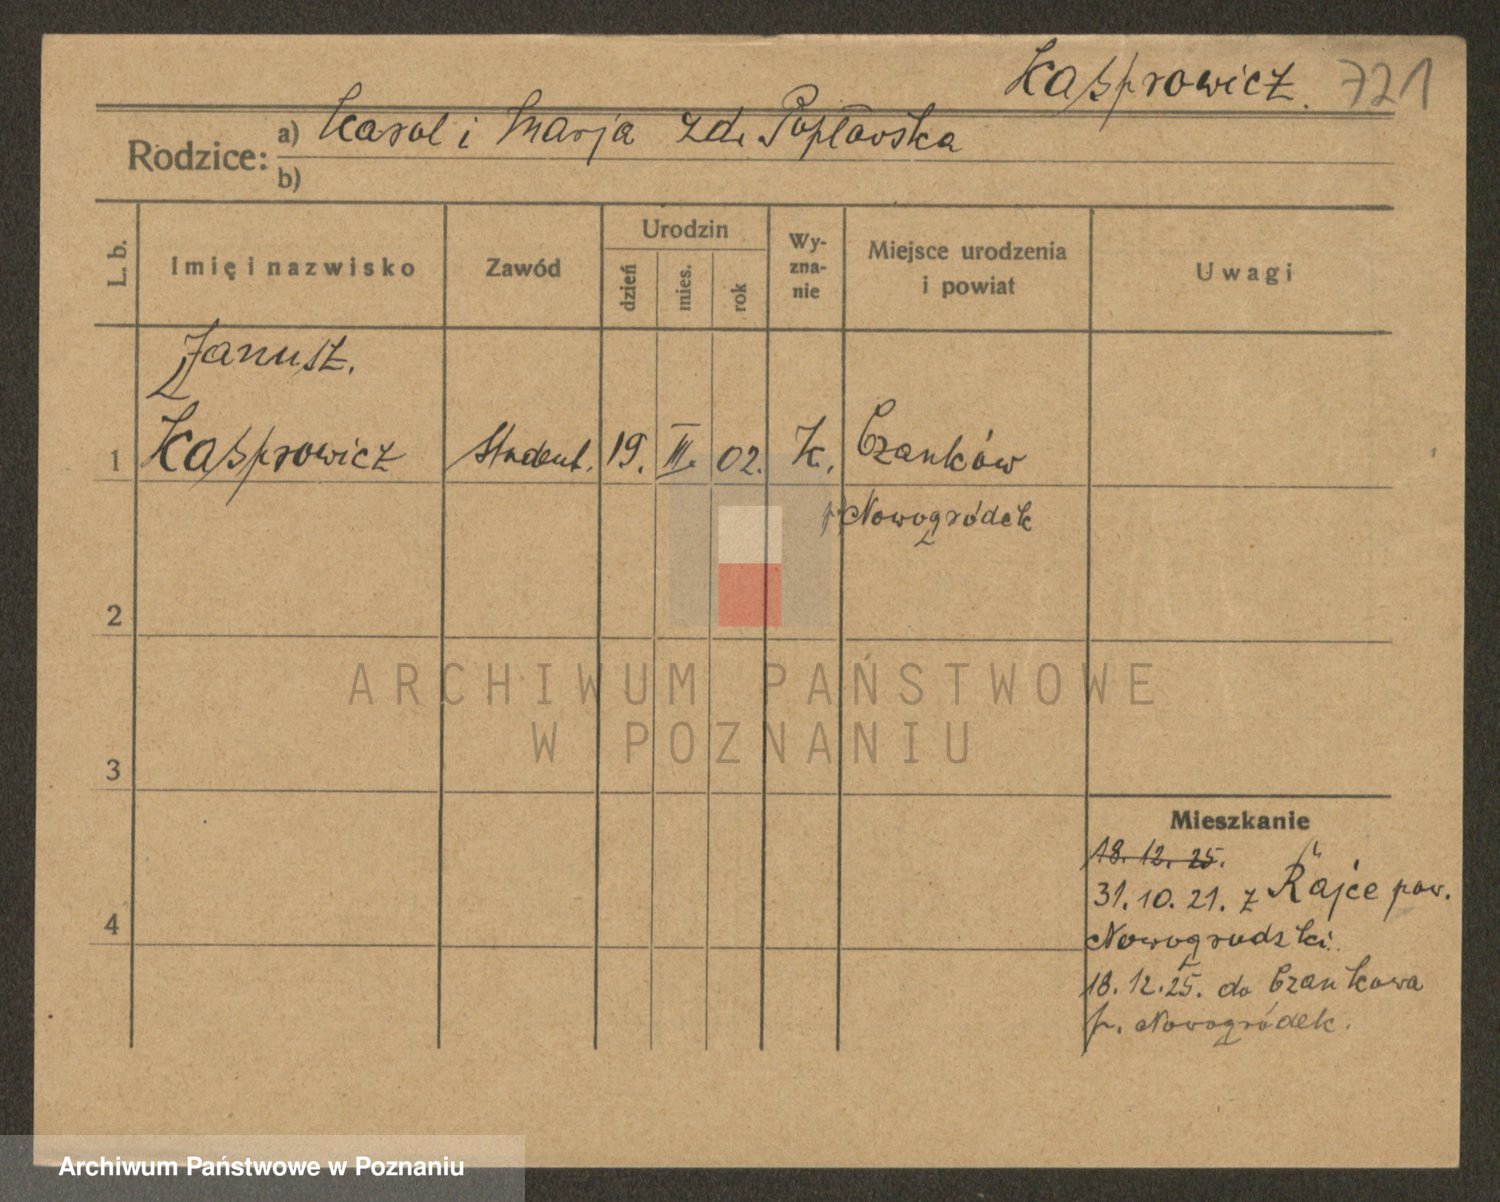 Kasprowicz. 721
Rodzice: a) Karol i Marja zd. Popławska
b)
L. b.
Imię i nazwisko
Zawód
Urodzin
dzień
mies.
rok
Wy-
zna-
nie
Miejsce urodzenia
i powiat
Uwagi
Janusz.
1 Kasprowicz Student. 19. III. 02. K. Czanków
p. Nowogródek
2
3
4
Mieszkanie
18. 12. 25.
31. 10. 21. z Rajce pow.
Nowogrodzki.
18. 12. 25. do Czankowa
p. Nowogródek.
ARCHIWUM PAŃSTWOWE
W POZNANIU
Archiwum Państwowe w Poznaniu